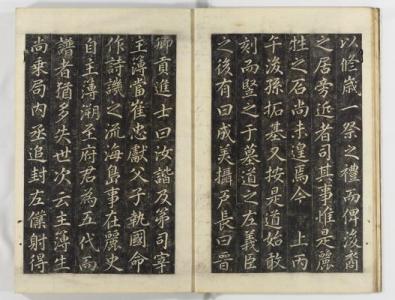 以修歲一祭之禮而俾後裔
之居旁近者司其事惟是麗
牲之石尚未遑焉今上丙
午後孫拓基又按是道始敢
刻而竪之于墓道之左義臣
之後有曰成美攝戶長曰晉
卿貢進士曰汝諧及第司宰
主簿當崔忠獻父子執國命
作詩譏之流海島事在麗史
自主簿朔至府君為五代而
譜者猶多失世次云主簿生
尚乘局內丞追封左僕射得